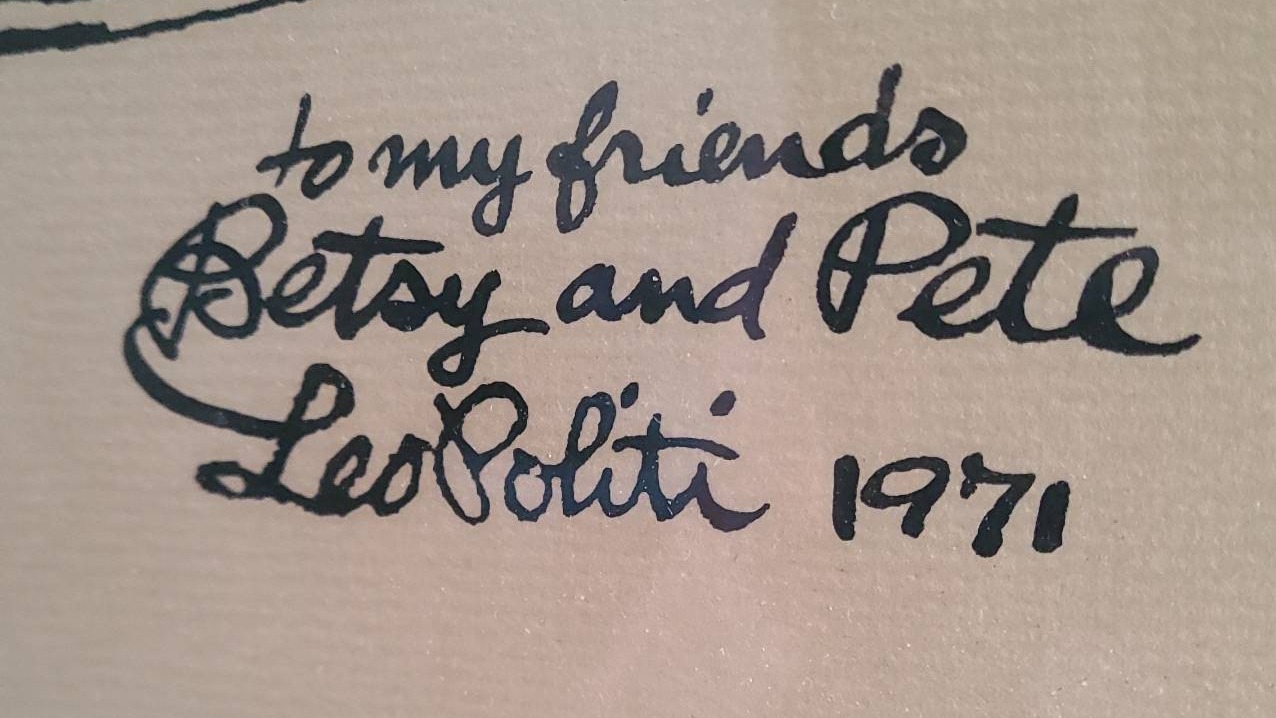 to my friends
Betsy and Pete
Leo Politi 1971